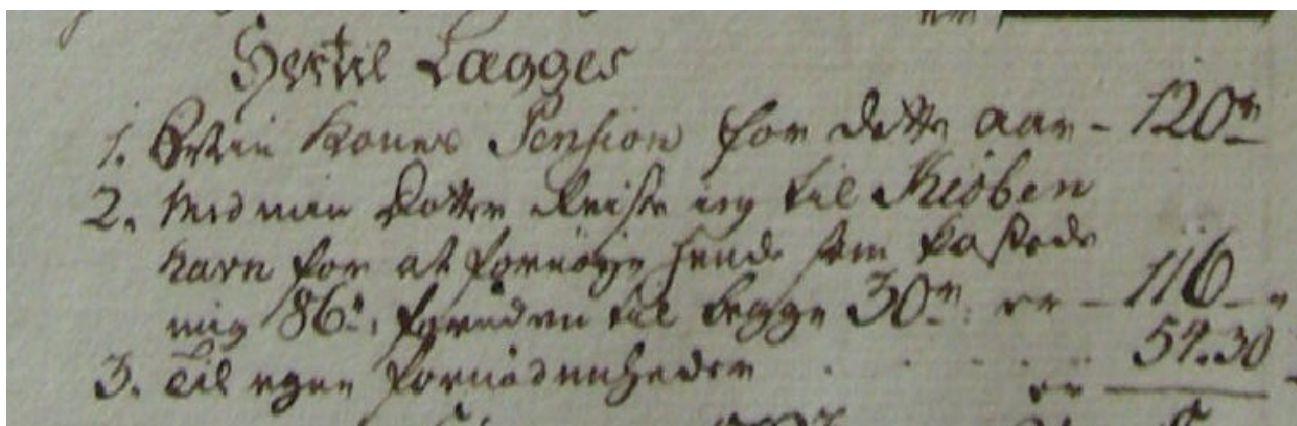 Hertil Lægges
1. min Kones Pension for dette aar - 120
2. Med min Dotter Reiste ieg til Kiøben
havn for at fornøye hende som kostede
mig 86, foruden til begge 30 er - 116
3. Til egne fornødenheder 54.30
er